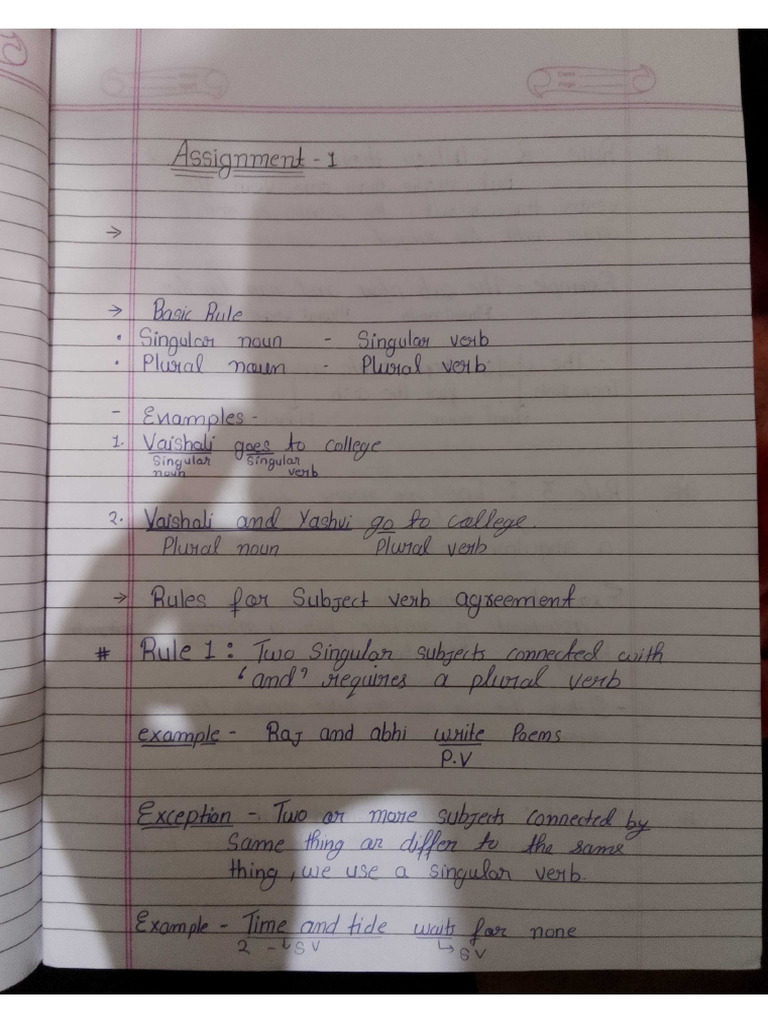 Assignment - 1
→
→ Basic Rule
• Singular noun - Singular verb
• Plural noun - Plural verb
- Examples -
1. Vaishali goes to college
Singular noun Singular verb
2. Vaishali and Yashvi go to college.
Plural noun Plural verb
→ Rules for Subject verb agreement
# Rule 1 : Two Singular subjects connected with
'and' requires a plural verb
example - Raj and abhi write Poems
P.V
Exception - Two or more subjects connected by
Same thing or differ to the same
thing, we use a singular verb.
Example - Time and tide waits for none
2 - ↳ S V ↳ S V